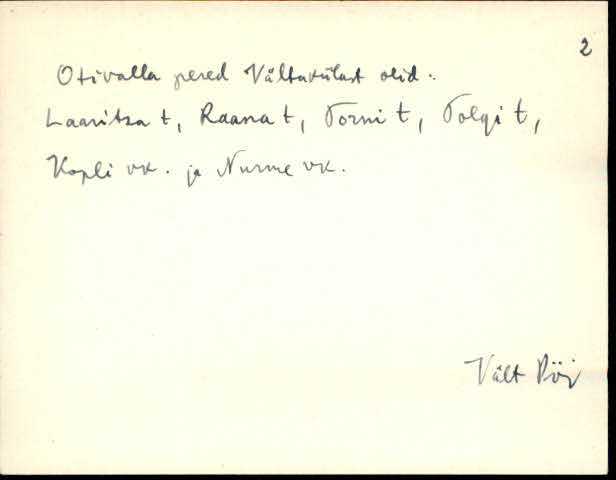 2
Otivalla pered Vältakülast olid:
Laaritsa t, Raana t, Torni t, Tolgi t,
Kopli vk. ja Nurme vk.
Vält Pöi